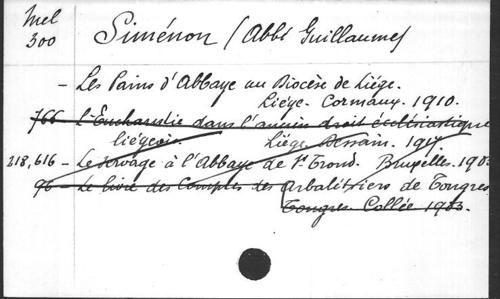 Mel
300
Siménon (Abbé Guillaume)
- Les Pains d'Abbaye au Diocèse de Liége.
Liége. Cormaux. 1910.
766 L'Eucharistie dans l'ancien droit ecclésiastique
liégeois. Liége Dessain. 1917.
218,616 - Le servage à l'Abbaye de St Trond. Bruxelles. 190
96 - Le livre des Comptes des Arbalétriers de Tongres
Tongres. Collée 1903.